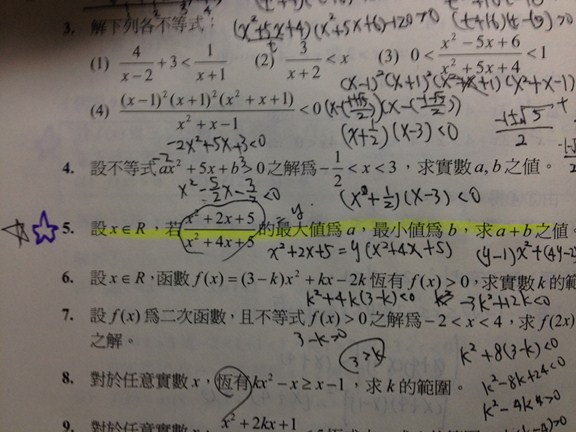 (x²+5x+4)(x²+5x+6)-120>0
3. 解下列各不等式：
(1) 4/(x-2)+3<1/(x+1) (2) 3/(x+2)<x (3) 0<(x²-5x+6)/(x²+5x+4)<1
(4) (x-1)²(x+1)²(x²+x+1)/(x²+x-1)<0
(x+1/2)(x-3)<0
-2x²+5x+3<0
4. 設不等式 ax²+5x+b>0之解為-1/2<x<3，求實數a, b之值。
x²-5/2x-3/2<0
(x+1/2)(x-3)<0
5. 設x∈R，若(x²+2x+5)/(x²+4x+5)的最大值為a，最小值為b，求a+b之值。
=y
x²+2x+5=y(x²+4x+5)
6. 設x∈R，函數f(x)=(3-k)x²+kx-2k恆有f(x)>0，求實數k的範
k²+4k(3-k)<0
-3k²+12k<0
7. 設f(x)為二次函數，且不等式f(x)>0之解為-2<x<4，求f(2x)
之解。
3-k>0
3>k
k²+8(3-k)<0
8. 對於任意實數x，恆有kx²-x≥x-1，求k的範圍。
k²-8k+24<0
9. 對於任意實數 x²+2kx+1